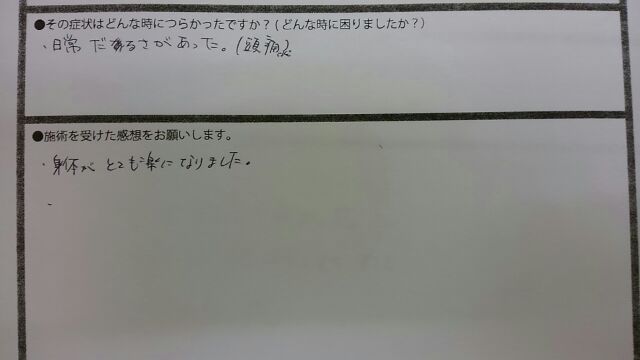 ●その症状はどんな時につらかったですか？(どんな時に困りましたか？)
・日常 だるさがあった。(頭痛)
●施術を受けた感想をお願いします。
・身体が とても楽になりました。